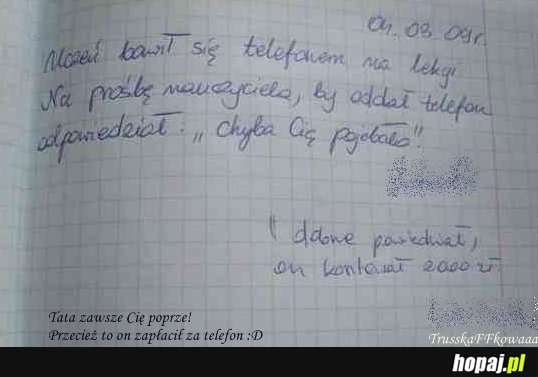 04.03.09r.
Uczeń bawił się telefonem na lekcji
Na prośbę nauczyciela, by oddał telefon
odpowiedział: „Chyba Cię pojebało".
dobrze powiedział,
on kosztował 2000 zł.
Tata zawsze Cię poprze!
Przecież to on zapłacił za telefon :D
TrusskaFFkowaaa
hopaj.pl